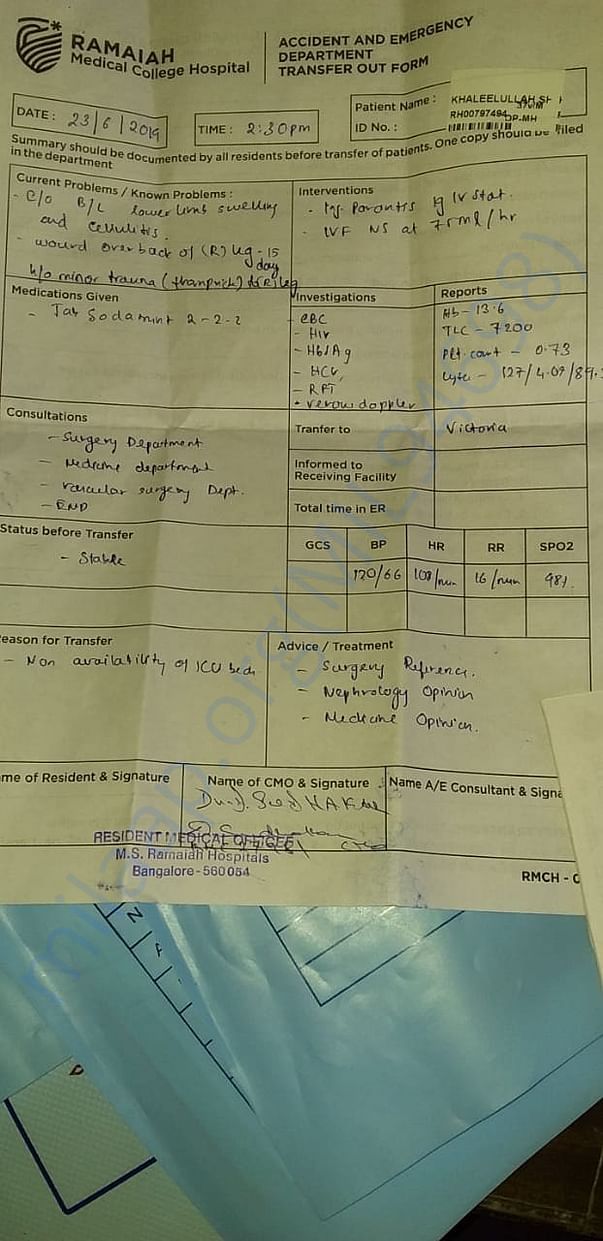 RAMAIAH
Medical College Hospital
ACCIDENT AND EMERGENCY
DEPARTMENT
TRANSFER OUT FORM
Patient Name :
KHALEELULLAH SH
37Y/M
ID No. :
RH00797494
DP-MH
DATE : 23/6/2019
TIME : 2:30pm
Summary should be documented by all residents before transfer of patients. One copy should be filed
in the department
Current Problems / Known Problems :
- C/o B/L lower limb swelling
and cellulitis.
- wound over back of (R) leg - 15
day
h/o minor trauma
Interventions
- IVF NS at 75ml/hr
Medications Given
- Tab Sodamint 2-2-2
Investigations
- CBC
- HIV
- HbsAg
- HCV,
- RFT
- venous doppler
Reports
Hb - 13.6
TLC - 7200
Plt. count - 0.73
Consultations
- Surgery Department
- Medicine department
- Vascular surgery Dept.
Tranfer to
Victoria
Informed to
Receiving Facility
Total time in ER
Status before Transfer
- Stable
GCS BP HR RR SPO2
120/66 108/min 16/min 98%
eason for Transfer
- Non availability of ICU beds
Advice / Treatment
- Surgery Reference.
- Nephrology Opinion
- Medicine Opinion.
me of Resident & Signature
Name of CMO & Signature
Name A/E Consultant & Signa
RESIDENT MEDICAL OFFICER
M.S. Ramaiah Hospitals
Bangalore - 560 054
RMCH - 0